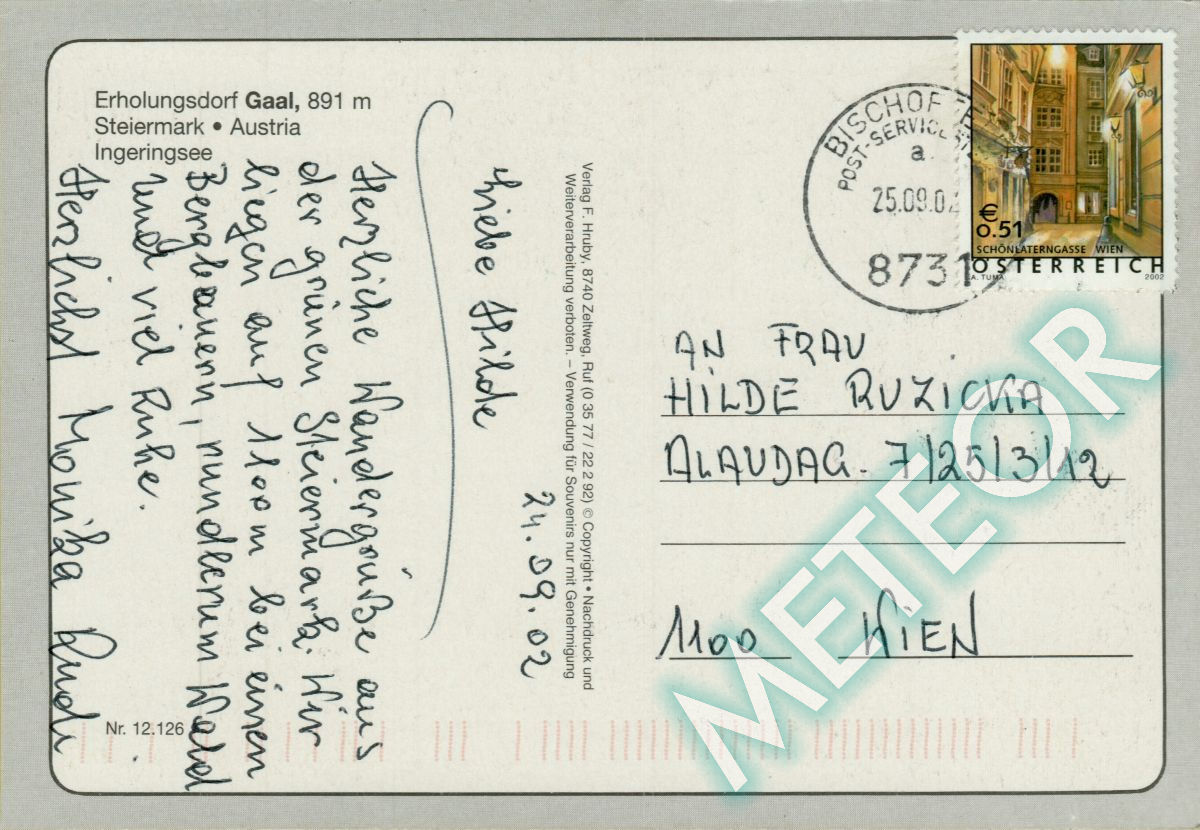 Erholungsdorf Gaal, 891 m
Steiermark • Austria
Ingeringsee
24.09.02
Liebe Hilde
Herzliche Wandergrüße aus
der grünen Steiermark. Wir
liegen auf 1100m bei einen
Bergbauern, rundherum Wald
und viel Ruhe.
Herzlichst Monika Rudi
Nr. 12.126
Verlag F. Hruby, 8740 Zeltweg, Ruf (0 35 77 / 22 2 92) © Copyright • Nachdruck und
Weiterverarbeitung verboten. – Verwendung für Souvenirs nur mit Genehmigung
BISCHOF
POST-SERVICE
a
25.09.02
8731
€
0.51
SCHÖNLATERNGASSE WIEN
ÖSTERREICH
A. TUMA 2002
AN FRAU
HILDE RUZICKA
ALAUDAG. 7/25/3/12
1100 WIEN
METEOR